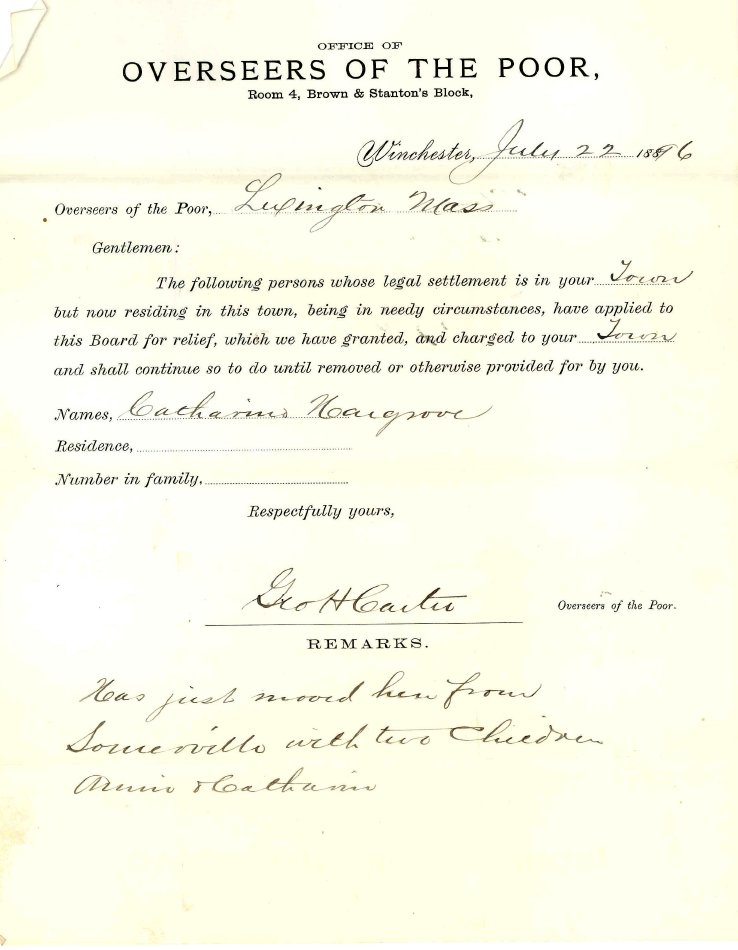 OFFICE OF
OVERSEERS OF THE POOR,
Room 4, Brown & Stanton's Block,
Winchester, July 22 1896
Overseers of the Poor, Lexington Mass
Gentlemen:
The following persons whose legal settlement is in your Town
but now residing in this town, being in needy circumstances, have applied to
this Board for relief, which we have granted, and charged to your Town
and shall continue so to do until removed or otherwise provided for by you.
Names, Catharine Hargrove
Residence,
Number in family,
Respectfully yours,
Geo H Carter
Overseers of the Poor.
REMARKS.
Has just moved here from
Somerville with two Children
Annie & Catharine